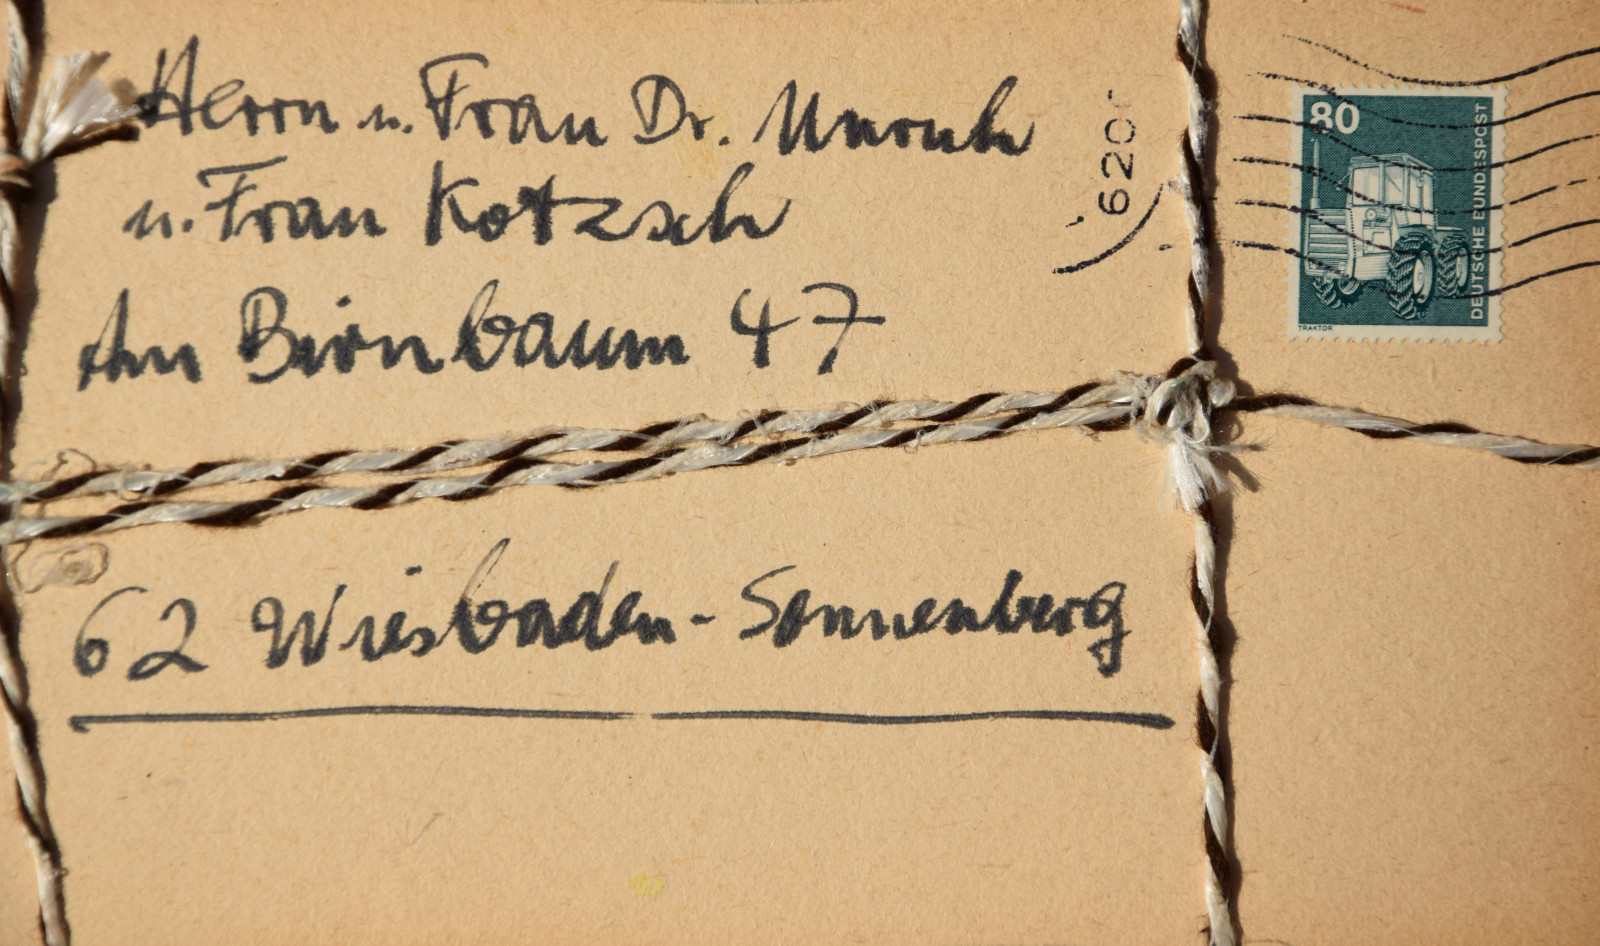 Herrn u. Frau Dr. Unruh
u. Frau Kotzsch
Am Birnbaum 47
62 Wiesbaden-Sonnenberg
620
80
DEUTSCHE BUNDESPOST
TRAKTOR